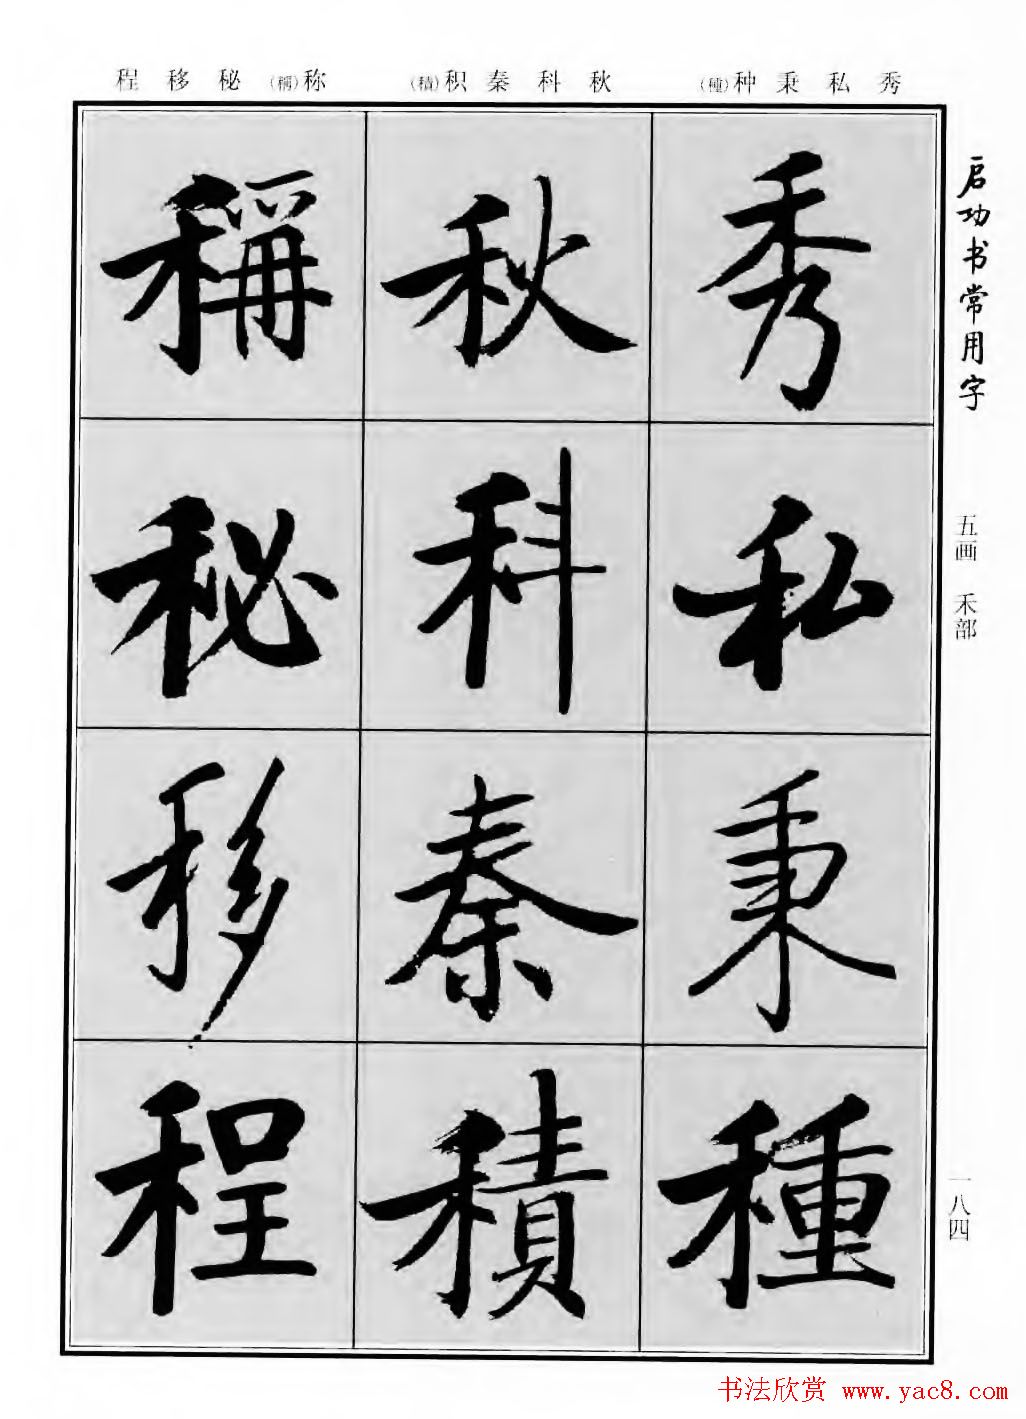 程 移 秘 (稱)称 (積)积 秦 科 秋 (種)种 秉 私 秀
启功书常用字
五画 禾部
一八四
秀
私
秉
種
秋
科
秦
積
稱
秘
移
程
书法欣赏 www.yac8.com